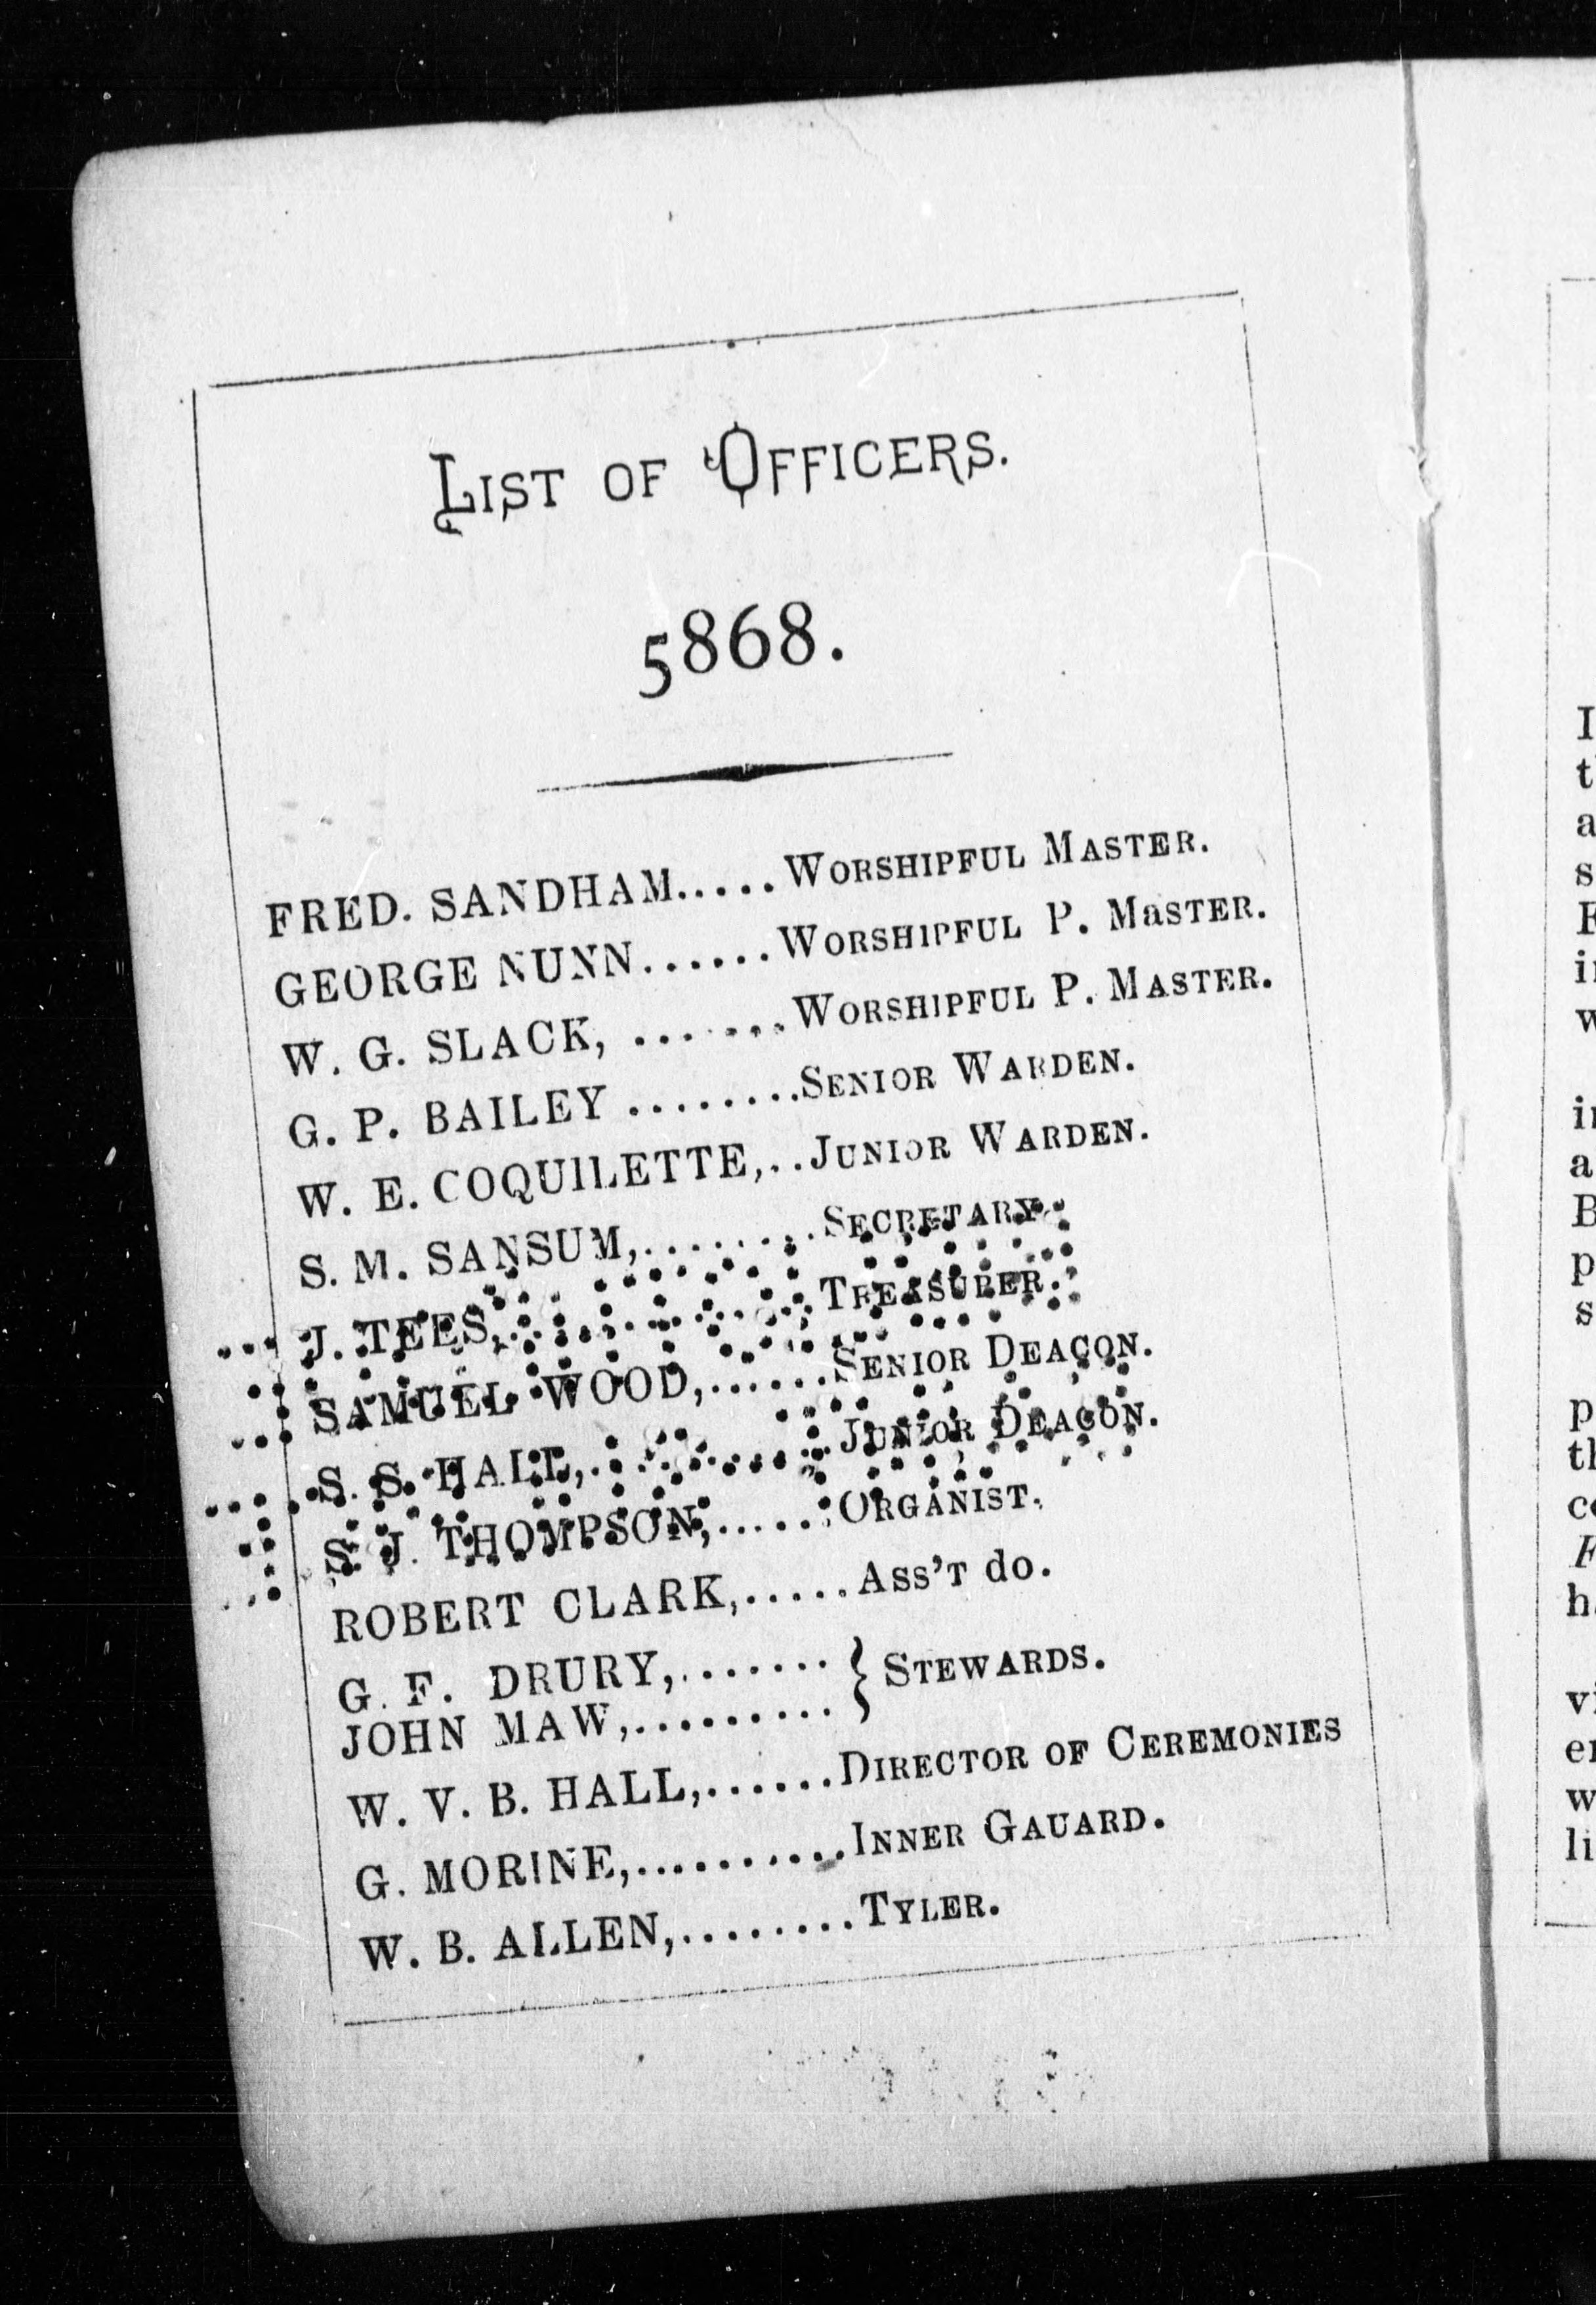 LIST OF OFFICERS.
5868.
FRED. SANDHAM.....WORSHIPFUL MASTER.
GEORGE NUNN......WORSHIPFUL P. MaSTER.
W. G. SLACK, ........WORSHIPFUL P. MASTER.
G. P. BAILEY ........SENIOR WARDEN.
W. E. COQUILETTE,..JUNIOR WARDEN.
S. M. SANSUM,........SECRETARY.
J. TEES,............TREASURER.
SAMUEL WOOD,......SENIOR DEACON.
S. S. HALL,..........JUNIOR DEACON.
S. J. THOMPSON,......ORGANIST.
ROBERT CLARK,.....ASS'T do.
G. F. DRURY,....... } STEWARDS.
JOHN MAW,.........
W. V. B. HALL,......DIRECTOR OF CEREMONIES
G. MORINE,..........INNER GAUARD.
W. B. ALLEN,........TYLER.